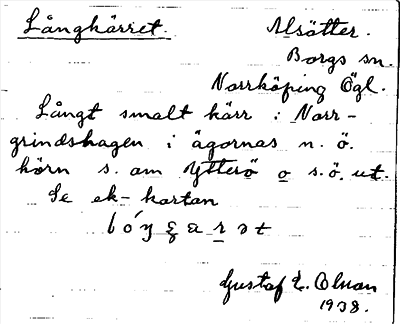 Långkärret. Alsätter.
Borgs sn.
Norrköping Ögl.
Långt smalt kärr i Norr-
grindshagen i ägornas n. ö.
hörn s. om Ytterö o s.ö. ut.
Se ek-kartan
Gustaf E. Olman
1938.